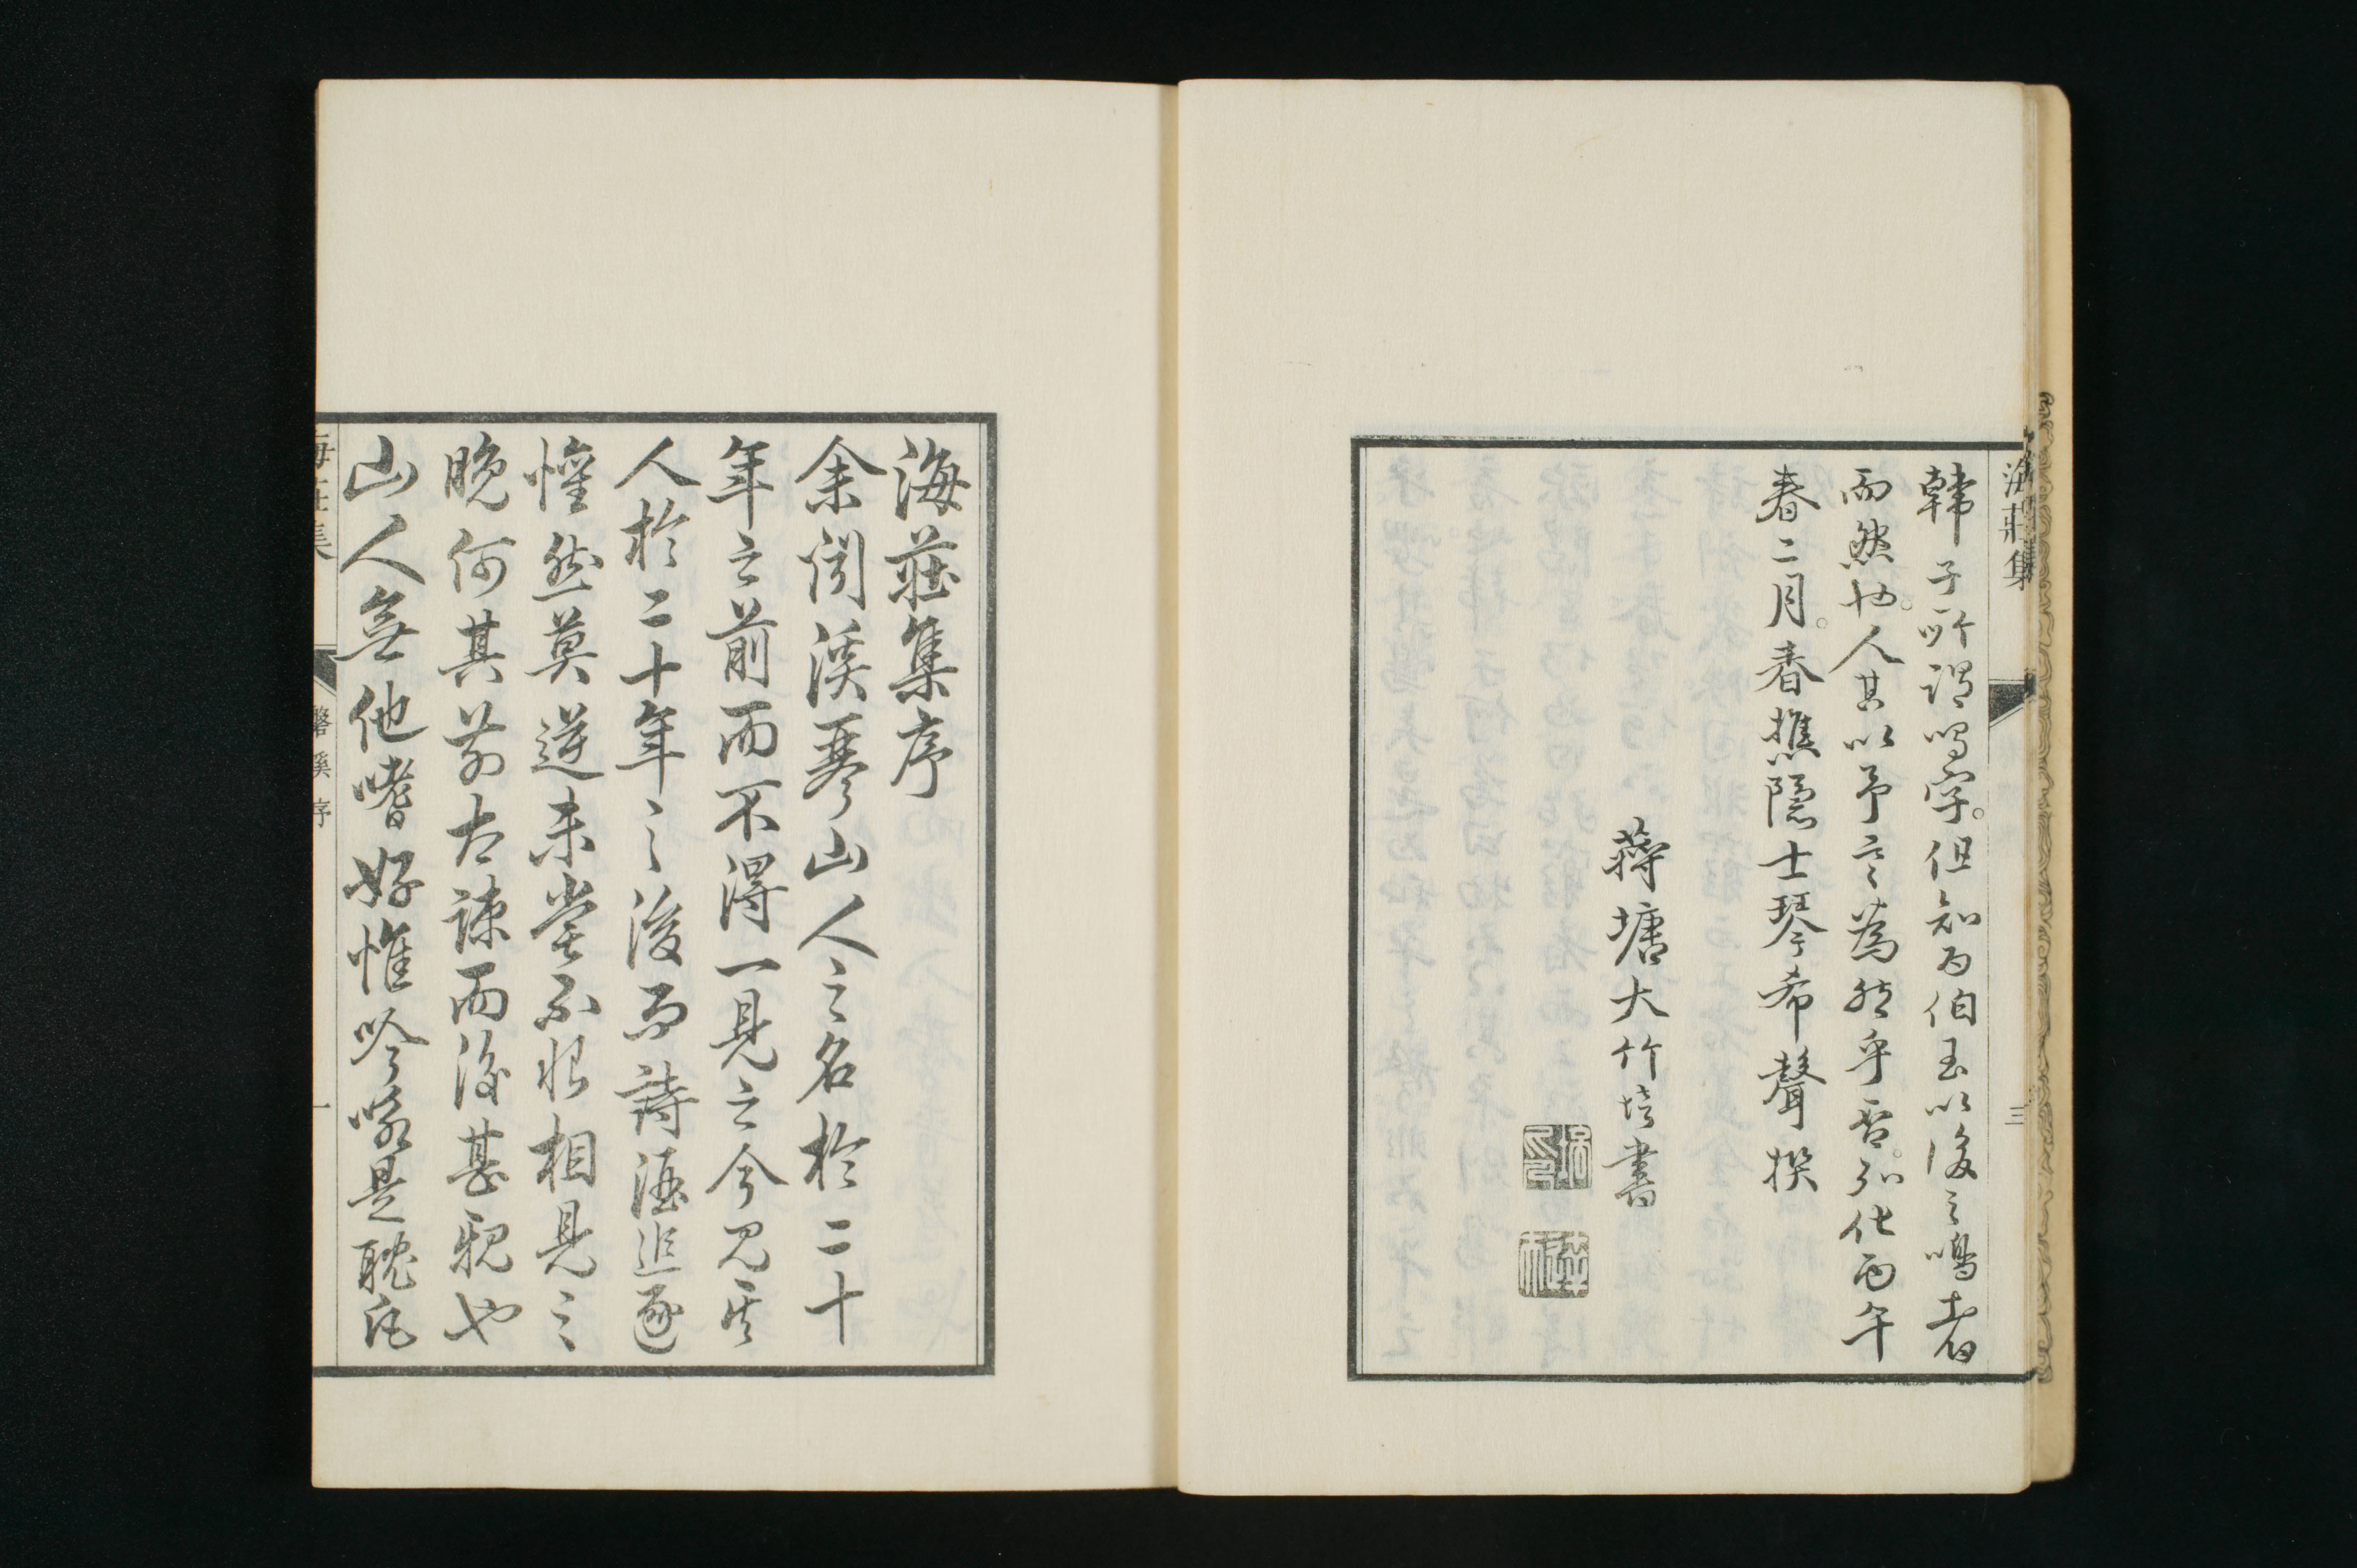 海莊集
三
韓子所謂鳴字。但知為伯玉以後之鳴者
而然也。人其以予言為然乎否。弘化丙午
春二月。春樵隱士琴希聲撰
蒋塘大竹培書
海莊集序
余聞溪琴山人之名於二十
年之前而不得一見之今見其
人於二十年之後而詩酒追逐
懽然莫逆未嘗不恨相見之
晚何其前太疎而後甚親也
山人無他嗜好惟吟咏是耽
海莊集
磐溪序
一